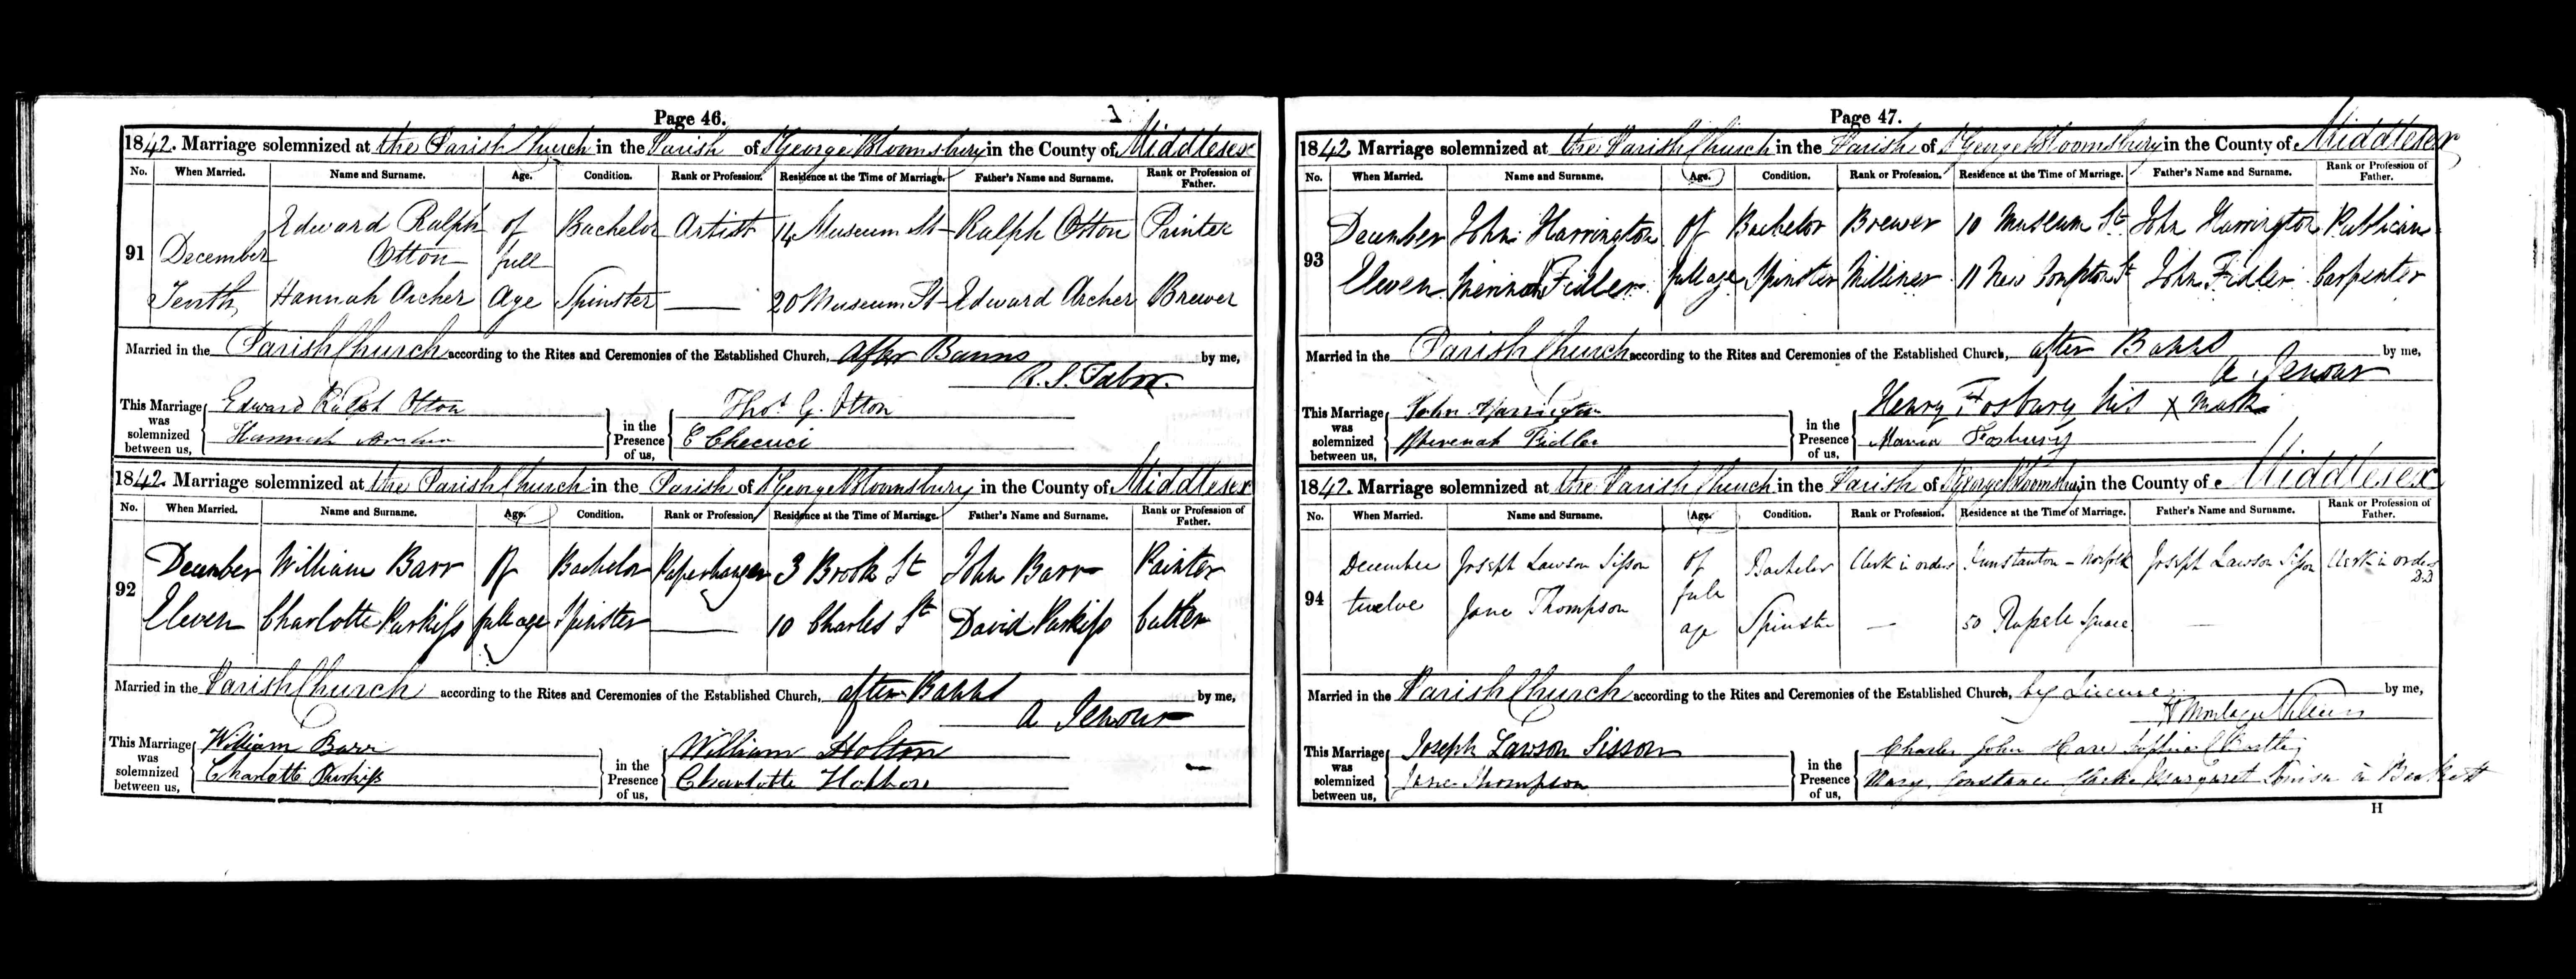 Page 46.
1842. Marriage solemnized at the Parish Church in the Parish of St George Bloomsbury in the County of Middlesex
No. When Married. Name and Surname. Age. Condition. Rank or Profession. Residence at the Time of Marriage. Father's Name and Surname. Rank or Profession of Father.
91 December Tenth Edward Ralph Otton of full Age Bachelor Artist 14 Museum St Ralph Otton Painter
Hannah Archer Spinster — 20 Museum St Edward Archer Brewer
Married in the Parish Church according to the Rites and Ceremonies of the Established Church, after Banns by me,
R. S. Tabor
This Marriage was solemnized between us, Edward Ralph Otton in the Presence of us, Thos G. Otton
Hannah Archer
1842. Marriage solemnized at the Parish Church in the Parish of St George Bloomsbury in the County of Middlesex
No. When Married. Name and Surname. Age. Condition. Rank or Profession. Residence at the Time of Marriage. Father's Name and Surname. Rank or Profession of Father.
92 December Eleven William Barr Of full age Bachelor Paperhanger 3 Brook St John Barr Painter
Charlotte Purkiss Spinster — 10 Charles St David Purkiss Cutter
Married in the Parish Church according to the Rites and Ceremonies of the Established Church, after Banns by me,
A Jenour
This Marriage was solemnized between us, William Barr in the Presence of us, William Holton
Charlotte Purkiss Charlotte
Page 47.
1842. Marriage solemnized at the Parish Church in the Parish of St George Bloomsbury in the County of Middlesex
No. When Married. Name and Surname. Age. Condition. Rank or Profession. Residence at the Time of Marriage. Father's Name and Surname. Rank or Profession of Father.
93 December Eleven John Harrington Of full age Bachelor Brewer 10 Museum St John Harrington Publican
Fidler Spinster Milliner 11 New Compton St John Fidler Carpenter
Married in the Parish Church according to the Rites and Ceremonies of the Established Church, after Banns by me,
A Jenour
This Marriage was solemnized between us, John Harrington in the Presence of us, Henry Fosbury his X Mark
Fidler Maria Fosbury
1842. Marriage solemnized at the Parish Church in the Parish of St George Bloomsbury in the County of Middlesex
No. When Married. Name and Surname. Age. Condition. Rank or Profession. Residence at the Time of Marriage. Father's Name and Surname. Rank or Profession of Father.
94 December twelve Joseph Lawson Sisson of full age Bachelor Clerk in orders Hunstanton - Norfolk Joseph Lawson Sisson Clerk in orders D.D
Jane Thompson Spinster — 50 Russell Square —
Married in the Parish Church according to the Rites and Ceremonies of the Established Church, by License by me,
Montagu Villiers
This Marriage was solemnized between us, Joseph Lawson Sisson in the Presence of us, Charles John Hare
Jane Thompson Mary Constance Margaret Louisa
H